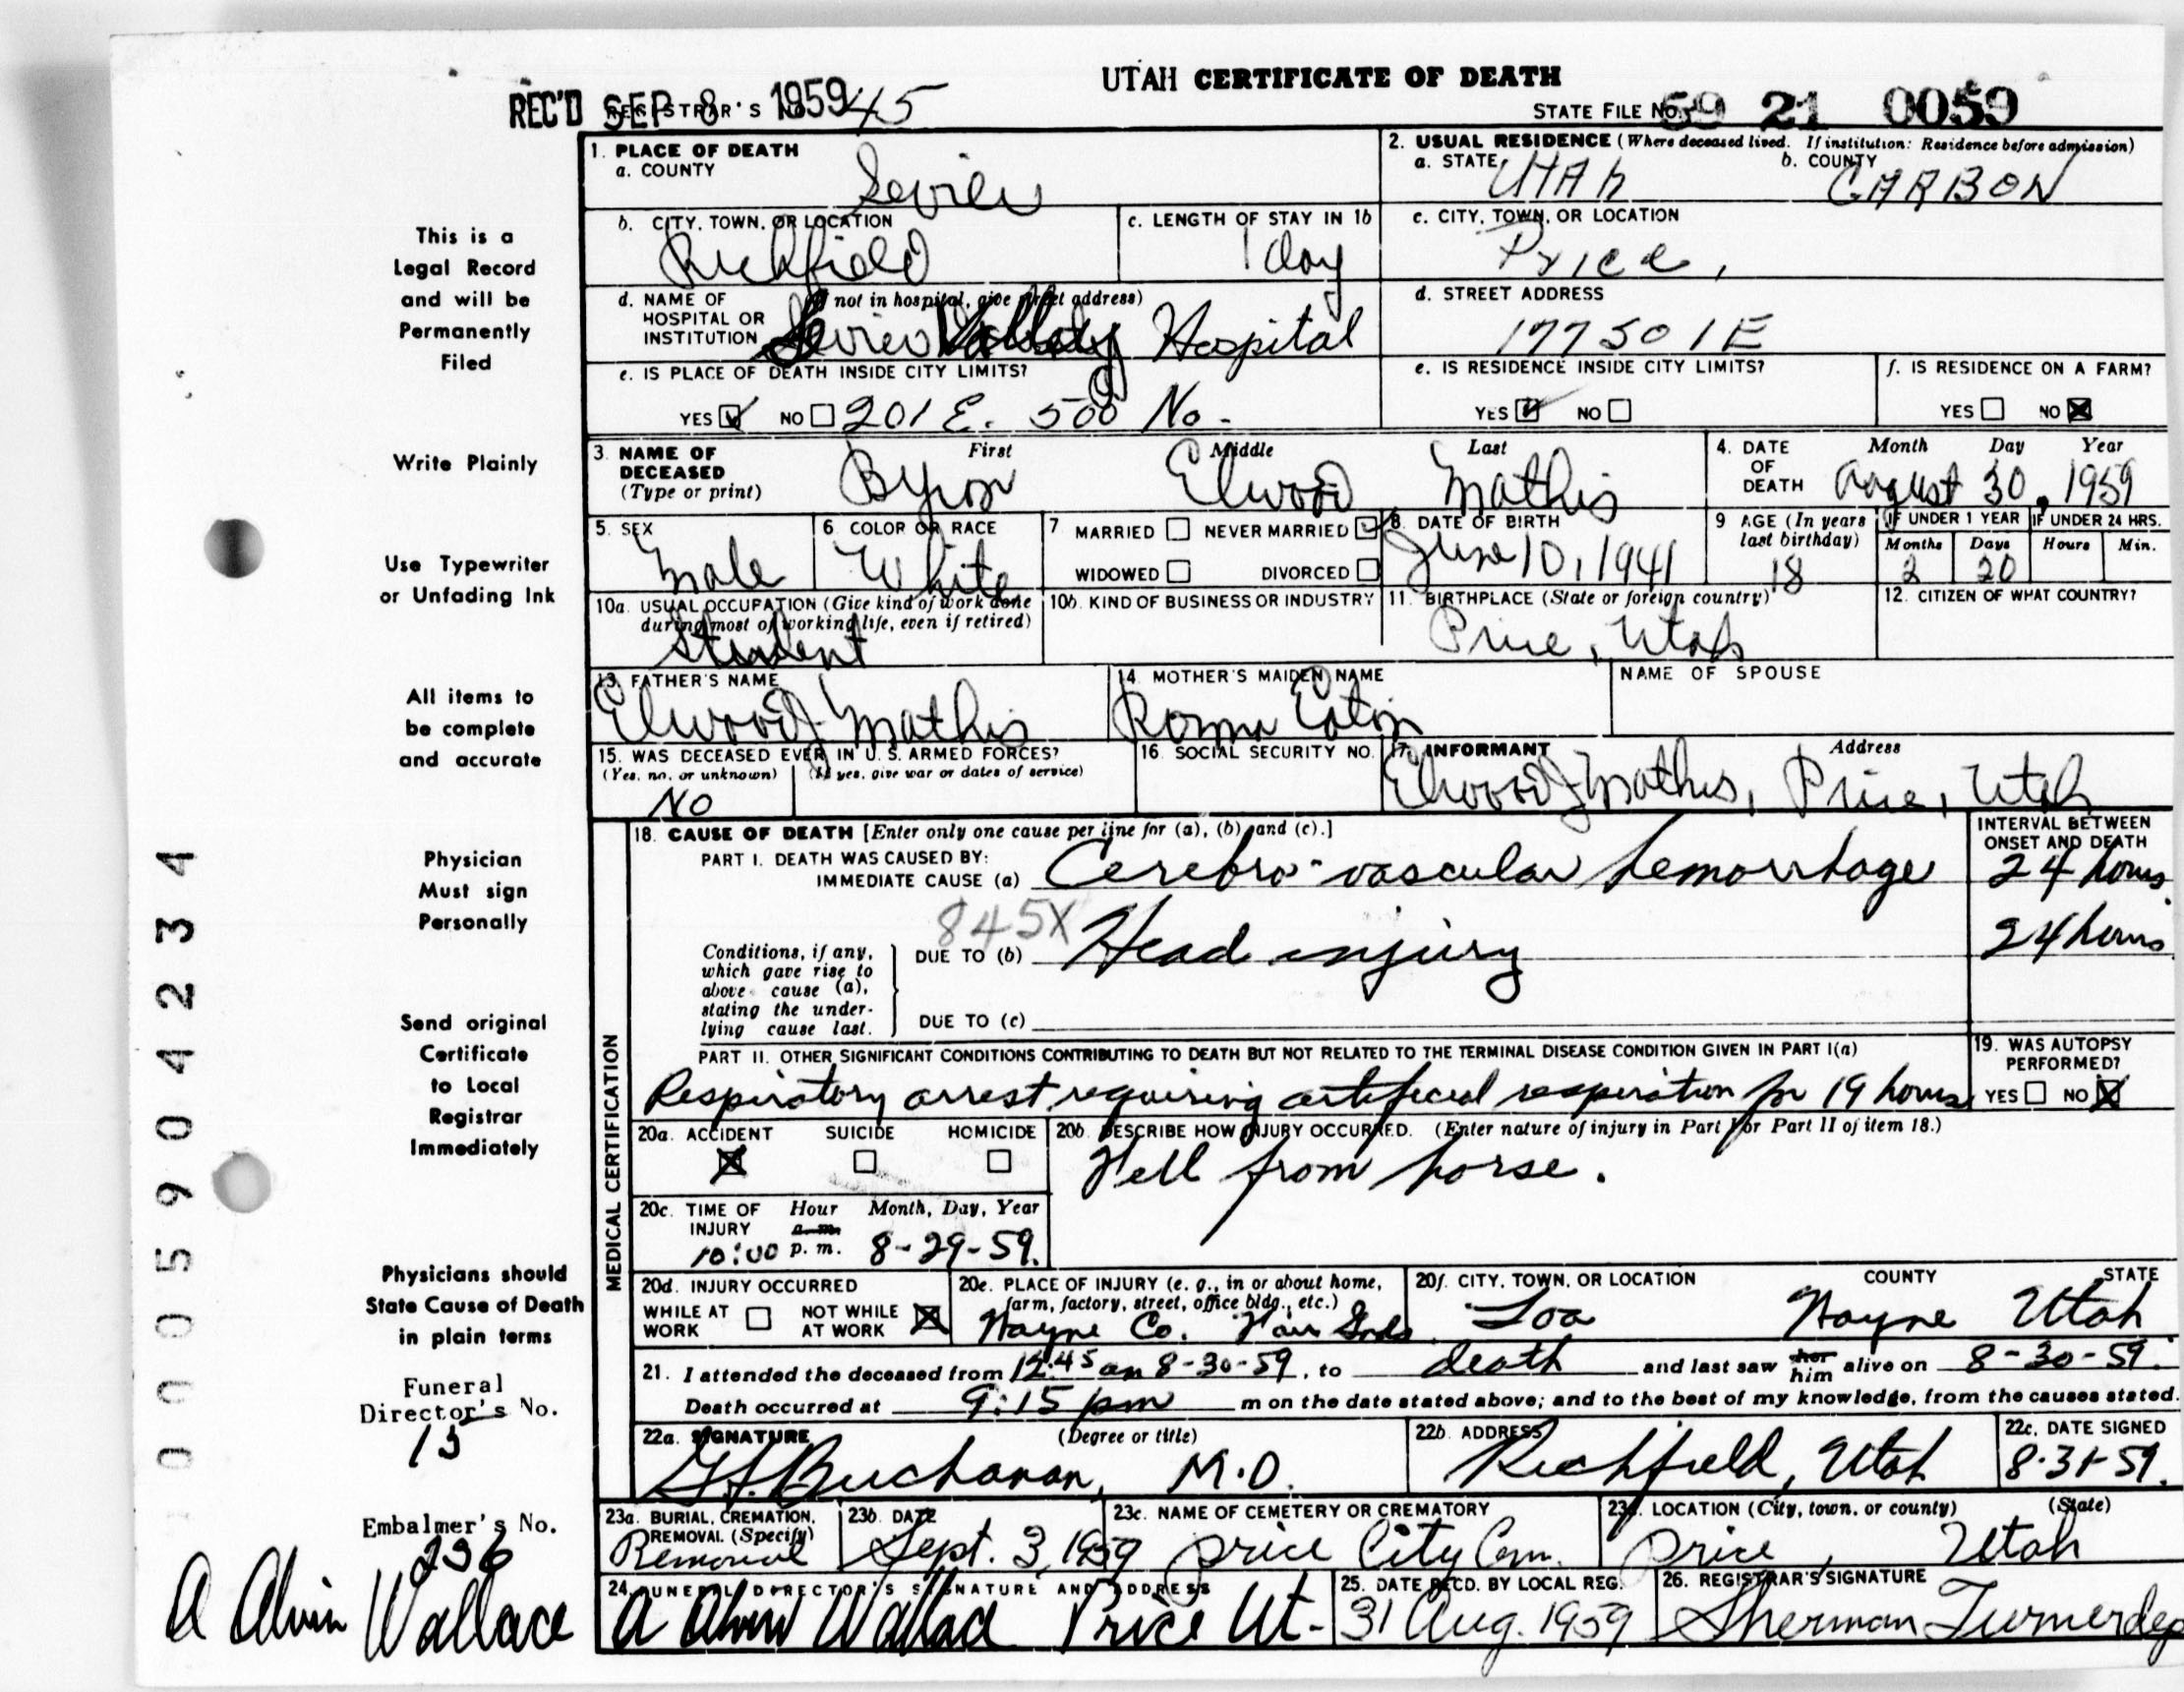 UTAH CERTIFICATE OF DEATH
REC'D SEP 8 1959 REGISTRAR'S NO. 45
STATE FILE NO. 59 21 0059
1. PLACE OF DEATH
a. COUNTY Sevier
2. USUAL RESIDENCE (Where deceased lived. If institution: Residence before admission)
a. STATE UTAh b. COUNTY CARBON
b. CITY, TOWN, OR LOCATION Richfield
c. LENGTH OF STAY IN 1b 1 day
c. CITY, TOWN, OR LOCATION Price,
d. NAME OF HOSPITAL OR INSTITUTION (If not in hospital, give street address) Sevier Valley Hospital
d. STREET ADDRESS 177 SO 1 E
e. IS PLACE OF DEATH INSIDE CITY LIMITS?
YES NO 201 E. 500 No.
e. IS RESIDENCE INSIDE CITY LIMITS?
YES NO
f. IS RESIDENCE ON A FARM?
YES NO
3. NAME OF DECEASED (Type or print)
First Middle Last
Byron Elwood Mathis
4. DATE OF DEATH Month Day Year
August 30, 1959
5. SEX Male
6 COLOR OR RACE White
7 MARRIED NEVER MARRIED
WIDOWED DIVORCED
8. DATE OF BIRTH June 10, 1941
9 AGE (In years last birthday) 18
IF UNDER 1 YEAR Months 2 Days 20
IF UNDER 24 HRS. Hours Min.
10a. USUAL OCCUPATION (Give kind of work done during most of working life, even if retired) Student
10b. KIND OF BUSINESS OR INDUSTRY
11. BIRTHPLACE (State or foreign country) Price, Utah
12. CITIZEN OF WHAT COUNTRY?
13. FATHER'S NAME Elwood J Mathis
14. MOTHER'S MAIDEN NAME Roma Eaton
NAME OF SPOUSE
15. WAS DECEASED EVER IN U. S. ARMED FORCES?
(Yes, no, or unknown) (If yes, give war or dates of service)
No
16. SOCIAL SECURITY NO.
17. INFORMANT Address
Elwood J Mathis, Price, Utah
MEDICAL CERTIFICATION
18. CAUSE OF DEATH [Enter only one cause per line for (a), (b) and (c).]
INTERVAL BETWEEN ONSET AND DEATH
PART I. DEATH WAS CAUSED BY:
IMMEDIATE CAUSE (a) Cerebro-vascular hemorrhage 24 hours
845X
Conditions, if any, which gave rise to above cause (a), stating the underlying cause last.
DUE TO (b) Head injury 24 hours
DUE TO (c)
PART II. OTHER SIGNIFICANT CONDITIONS CONTRIBUTING TO DEATH BUT NOT RELATED TO THE TERMINAL DISEASE CONDITION GIVEN IN PART I(a)
Respiratory arrest requiring artificial respiration for 19 hours
19. WAS AUTOPSY PERFORMED?
YES NO
20a. ACCIDENT SUICIDE HOMICIDE
20b. DESCRIBE HOW INJURY OCCURRED. (Enter nature of injury in Part I or Part II of item 18.)
Fell from horse.
20c. TIME OF INJURY Hour a.m. p.m. Month, Day, Year
10:00 8-29-59.
20d. INJURY OCCURRED
WHILE AT WORK NOT WHILE AT WORK
20e. PLACE OF INJURY (e. g., in or about home, farm, factory, street, office bldg., etc.)
Wayne Co. Fair Grds
20f. CITY, TOWN, OR LOCATION COUNTY STATE
Loa Wayne Utah
21. I attended the deceased from 12:45 am 8-30-59, to death and last saw her him alive on 8-30-59.
Death occurred at 9:15 pm m on the date stated above; and to the best of my knowledge, from the causes stated.
22a. SIGNATURE (Degree or title)
Buchanan, M.D.
22b. ADDRESS Richfield, Utah
22c. DATE SIGNED 8-31-59.
23a. BURIAL, CREMATION, REMOVAL (Specify) Removal
23b. DATE Sept. 3, 1959
23c. NAME OF CEMETERY OR CREMATORY Price City Cem.
23d. LOCATION (City, town, or county) (State)
Price, Utah
24. FUNERAL DIRECTOR'S SIGNATURE AND ADDRESS
A Alvin Wallace Price Ut-
25. DATE RECD. BY LOCAL REG. 31 Aug. 1959
26. REGISTRAR'S SIGNATURE Sherman Turner dep
This is a
Legal Record
and will be
Permanently
Filed
Write Plainly
Use Typewriter
or Unfading Ink
All items to
be complete
and accurate
Physician
Must sign
Personally
Send original
Certificate
to Local
Registrar
Immediately
Physicians should
State Cause of Death
in plain terms
Funeral
Director's No.
13
Embalmer's No.
236
A Alvin Wallace
000590 4234